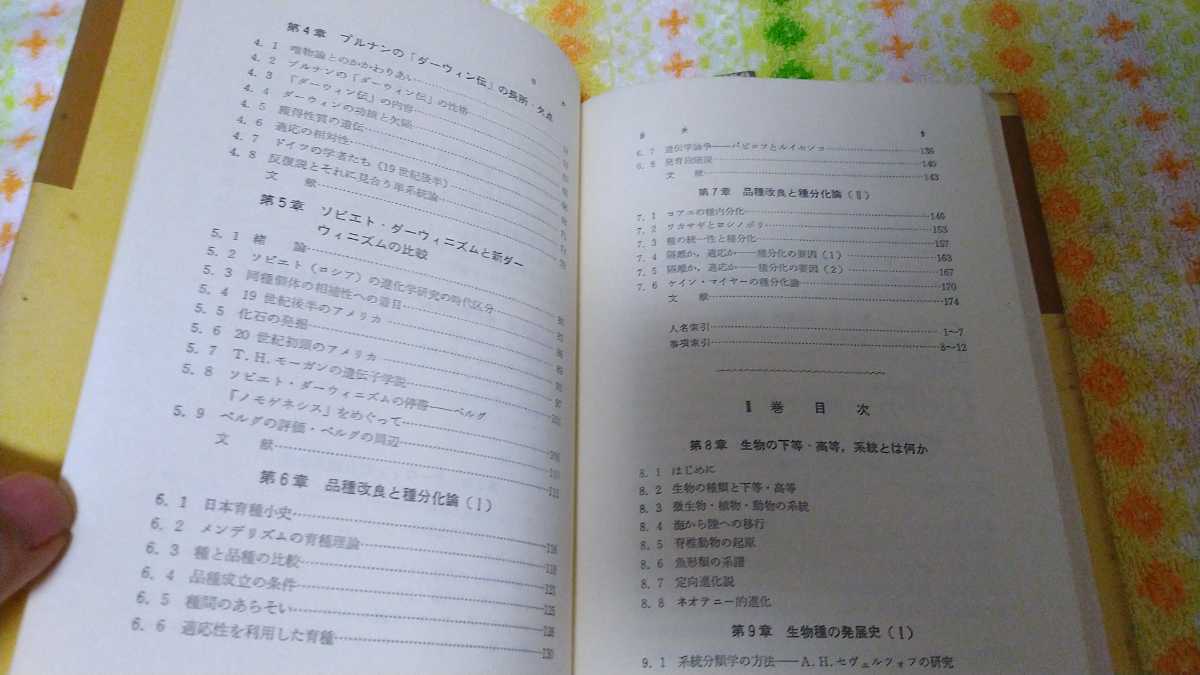 第4章 プルナンの「ダーウィン伝」の長所・欠点
4. 1 唯物論とのかかわりあい
4. 2 プルナンの「ダーウィン伝」の性格
4. 3 「ダーウィン伝」の内容
4. 4 ダーウィンの功績と欠陥
4. 5 獲得性質の遺伝
4. 6 適応の相対性
4. 7 ドイツの学者たち（19世紀後半）
4. 8 反復説とそれに見合う単系統論
文 献
第5章 ソビエト・ダーウィニズムと新ダー
ウィニズムの比較
5. 1 緒 論
5. 2 ソビエト（ロシア）の進化学研究の時代区分
5. 3 同種個体の相補性への着目
5. 4 19世紀後半のアメリカ
5. 5 化石の発掘
5. 6 20世紀初頭のアメリカ
5. 7 T. H. モーガンの遺伝子学説
5. 8 ソビエト・ダーウィニズムの停滞——ベルグ
『ノモゲネシス』をめぐって
5. 9 ベルグの評価・ベルグの周辺
文 献
第6章 品種改良と種分化論（Ⅰ）
6. 1 日本育種小史 116
6. 2 メンデリズムの育種理論 118
6. 3 種と品種の比較
6. 4 品種成立の条件 125
6. 5 種間のあらそい
6. 6 適応性を利用した育種 130
目 次
6. 7 遺伝学論争——バビロフとルイセンコ 136
6. 8 発育段階説 140
文 献 143
第7章 品種改良と種分化論（Ⅱ）
7. 1 コアユの種内分化
7. 2 ワカサギとヨシノボリ 153
7. 3 種の統一性と種分化 157
7. 4 隔離か，適応か——種分化の要因（1） 163
7. 5 隔離か，適応か——種分化の要因（2） 167
7. 6 ケイン・マイヤーの種分化論 170
文 献 174
人名索引 1～7
事項索引 8～12
Ⅱ 巻 目 次
第8章 生物の下等・高等，系統とは何か
8. 1 はじめに
8. 2 生物の種類と下等・高等
8. 3 微生物・植物・動物の系統
8. 4 海から陸への移行
8. 5 脊椎動物の起原
8. 6 魚形類の系譜
8. 7 定向進化説
8. 8 ネオテニー的進化
第9章 生物種の発展史（Ⅰ）
9. 1 系統分類学の方法——A. H. セヴェルツォフの研究